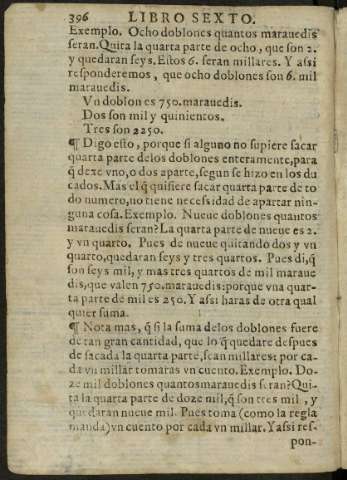 396 LIBRO SEXTO.
Exemplo. Ocho doblones quantos marauedis
seran. Quita la quarta parte de ocho, que son 2.
y quedaran seys. Estos 6. seran millares. Y assi
responderemos, que ocho doblones son 6. mil
marauedis.
Vn doblon es 750. marauedis.
Dos son mil y quinientos.
Tres son 2250.
¶ Digo esto, porque si alguno no supiere sacar
quarta parte delos doblones enteramente, para
q̃ dexe vno, o dos aparte, segun se hizo en los du
cados. Mas el q̃ quisiere sacar quarta parte de to
do numero, no tiene necessidad de apartar nin-
guna cosa. Exemplo. Nueue doblones quantos
marauedis seran? La quarta parte de nueue es 2.
y vn quarto. Pues de nueue quitando dos y vn
quarto, quedaran seys y tres quartos. Pues di, q̃
son seys mil, y mas tres quartos de mil maraue
dis, que valen 750. marauedis: porque vna quar-
ta parte de mil es 250. Y assi haras de otra qual
quier suma.
¶ Nota mas, q̃ si la suma delos doblones fuere
de tan gran cantidad, que lo q̃ quedare despues
de sacada la quarta parte, sean millares: por ca-
da vn millar tomaras vn cuento. Exemplo. Do-
ze mil doblones quantos marauedis seran? Qui-
ta la quarta parte de doze mil, q̃ son tres mil, y
quedaran nueue mil. Pues toma (como la regla
manda) vn cuento por cada vn millar. Y assi res-
pon-